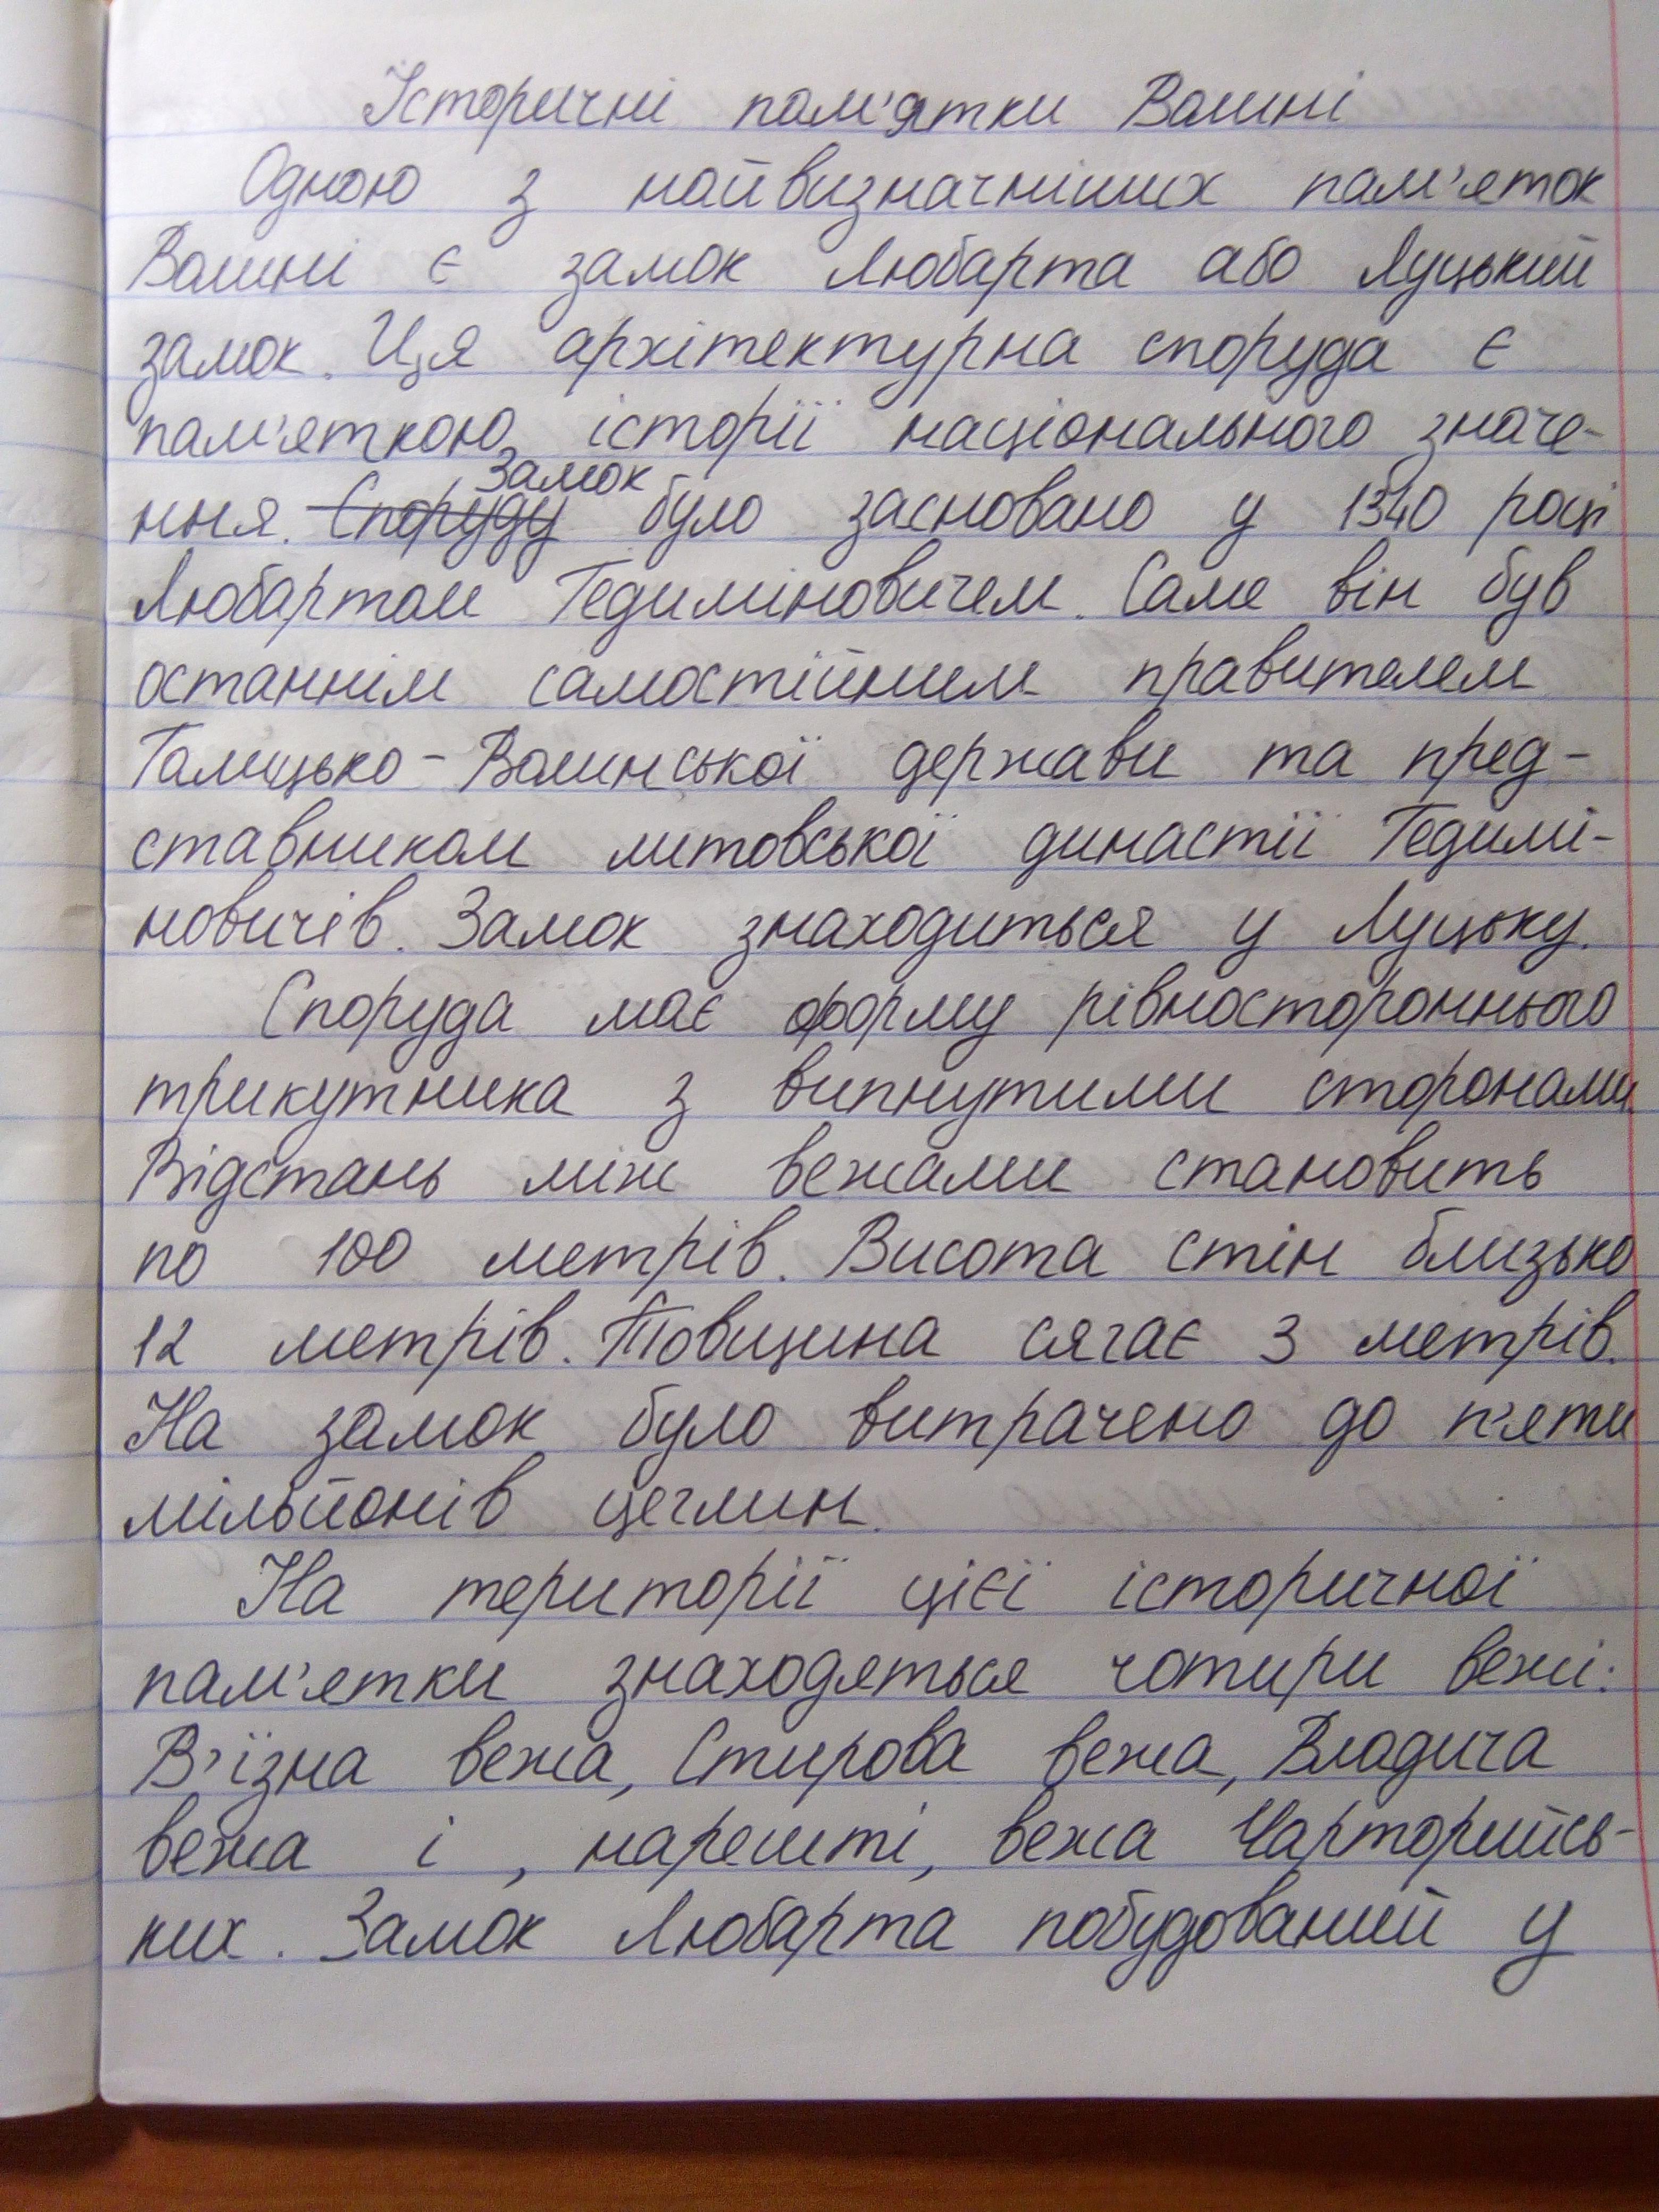 Історичні пам'ятки Волині
Одною з найвизначніших пам'яток
Волині є замок Любарта або Луцький
замок. Ця архітектурна споруда є
пам'яткою історії національного значе-
ння. Споруду Замок було засновано у 1340 році
Любартом Гедиміновичем. Саме він був
останнім самостійним правителем
Галицько-Волинської держави та пред-
ставником литовської династії Гедимі-
новичів. Замок знаходиться у Луцьку.
Споруда має форму рівностороннього
трикутника з випнутими сторонами.
Відстань між вежами становить
по 100 метрів. Висота стін близько
12 метрів. Товщина сягає 3 метрів.
На замок було витрачено до п'яти
мільйонів цеглин.
На території цієї історичної
пам'ятки знаходяться чотири вежі:
В'їзна вежа, Стирова вежа, Владича
вежа і , нарешті, вежа Чарторийсь-
ких. Замок Любарта побудований у